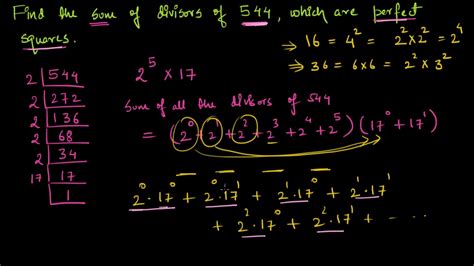 Find the sum of divisors of 544, which are perfect
squares.
⇒ 16 = 4² = 2²×2² = 2⁴
⇒ 36 = 6×6 = 2²×3²
2 | 544
2 | 272
2 | 136
2 | 68
2 | 34
17 | 17
1
2⁵ × 17
Sum of all the divisors of 544
= (2⁰+2¹+2²+2³+2⁴+2⁵)(17⁰+17¹)
2⁰·17⁰ + 2⁰·17¹ + 2¹·17⁰ + 2¹·17¹
+ 2²·17⁰ + 2²·17¹ + - - - -